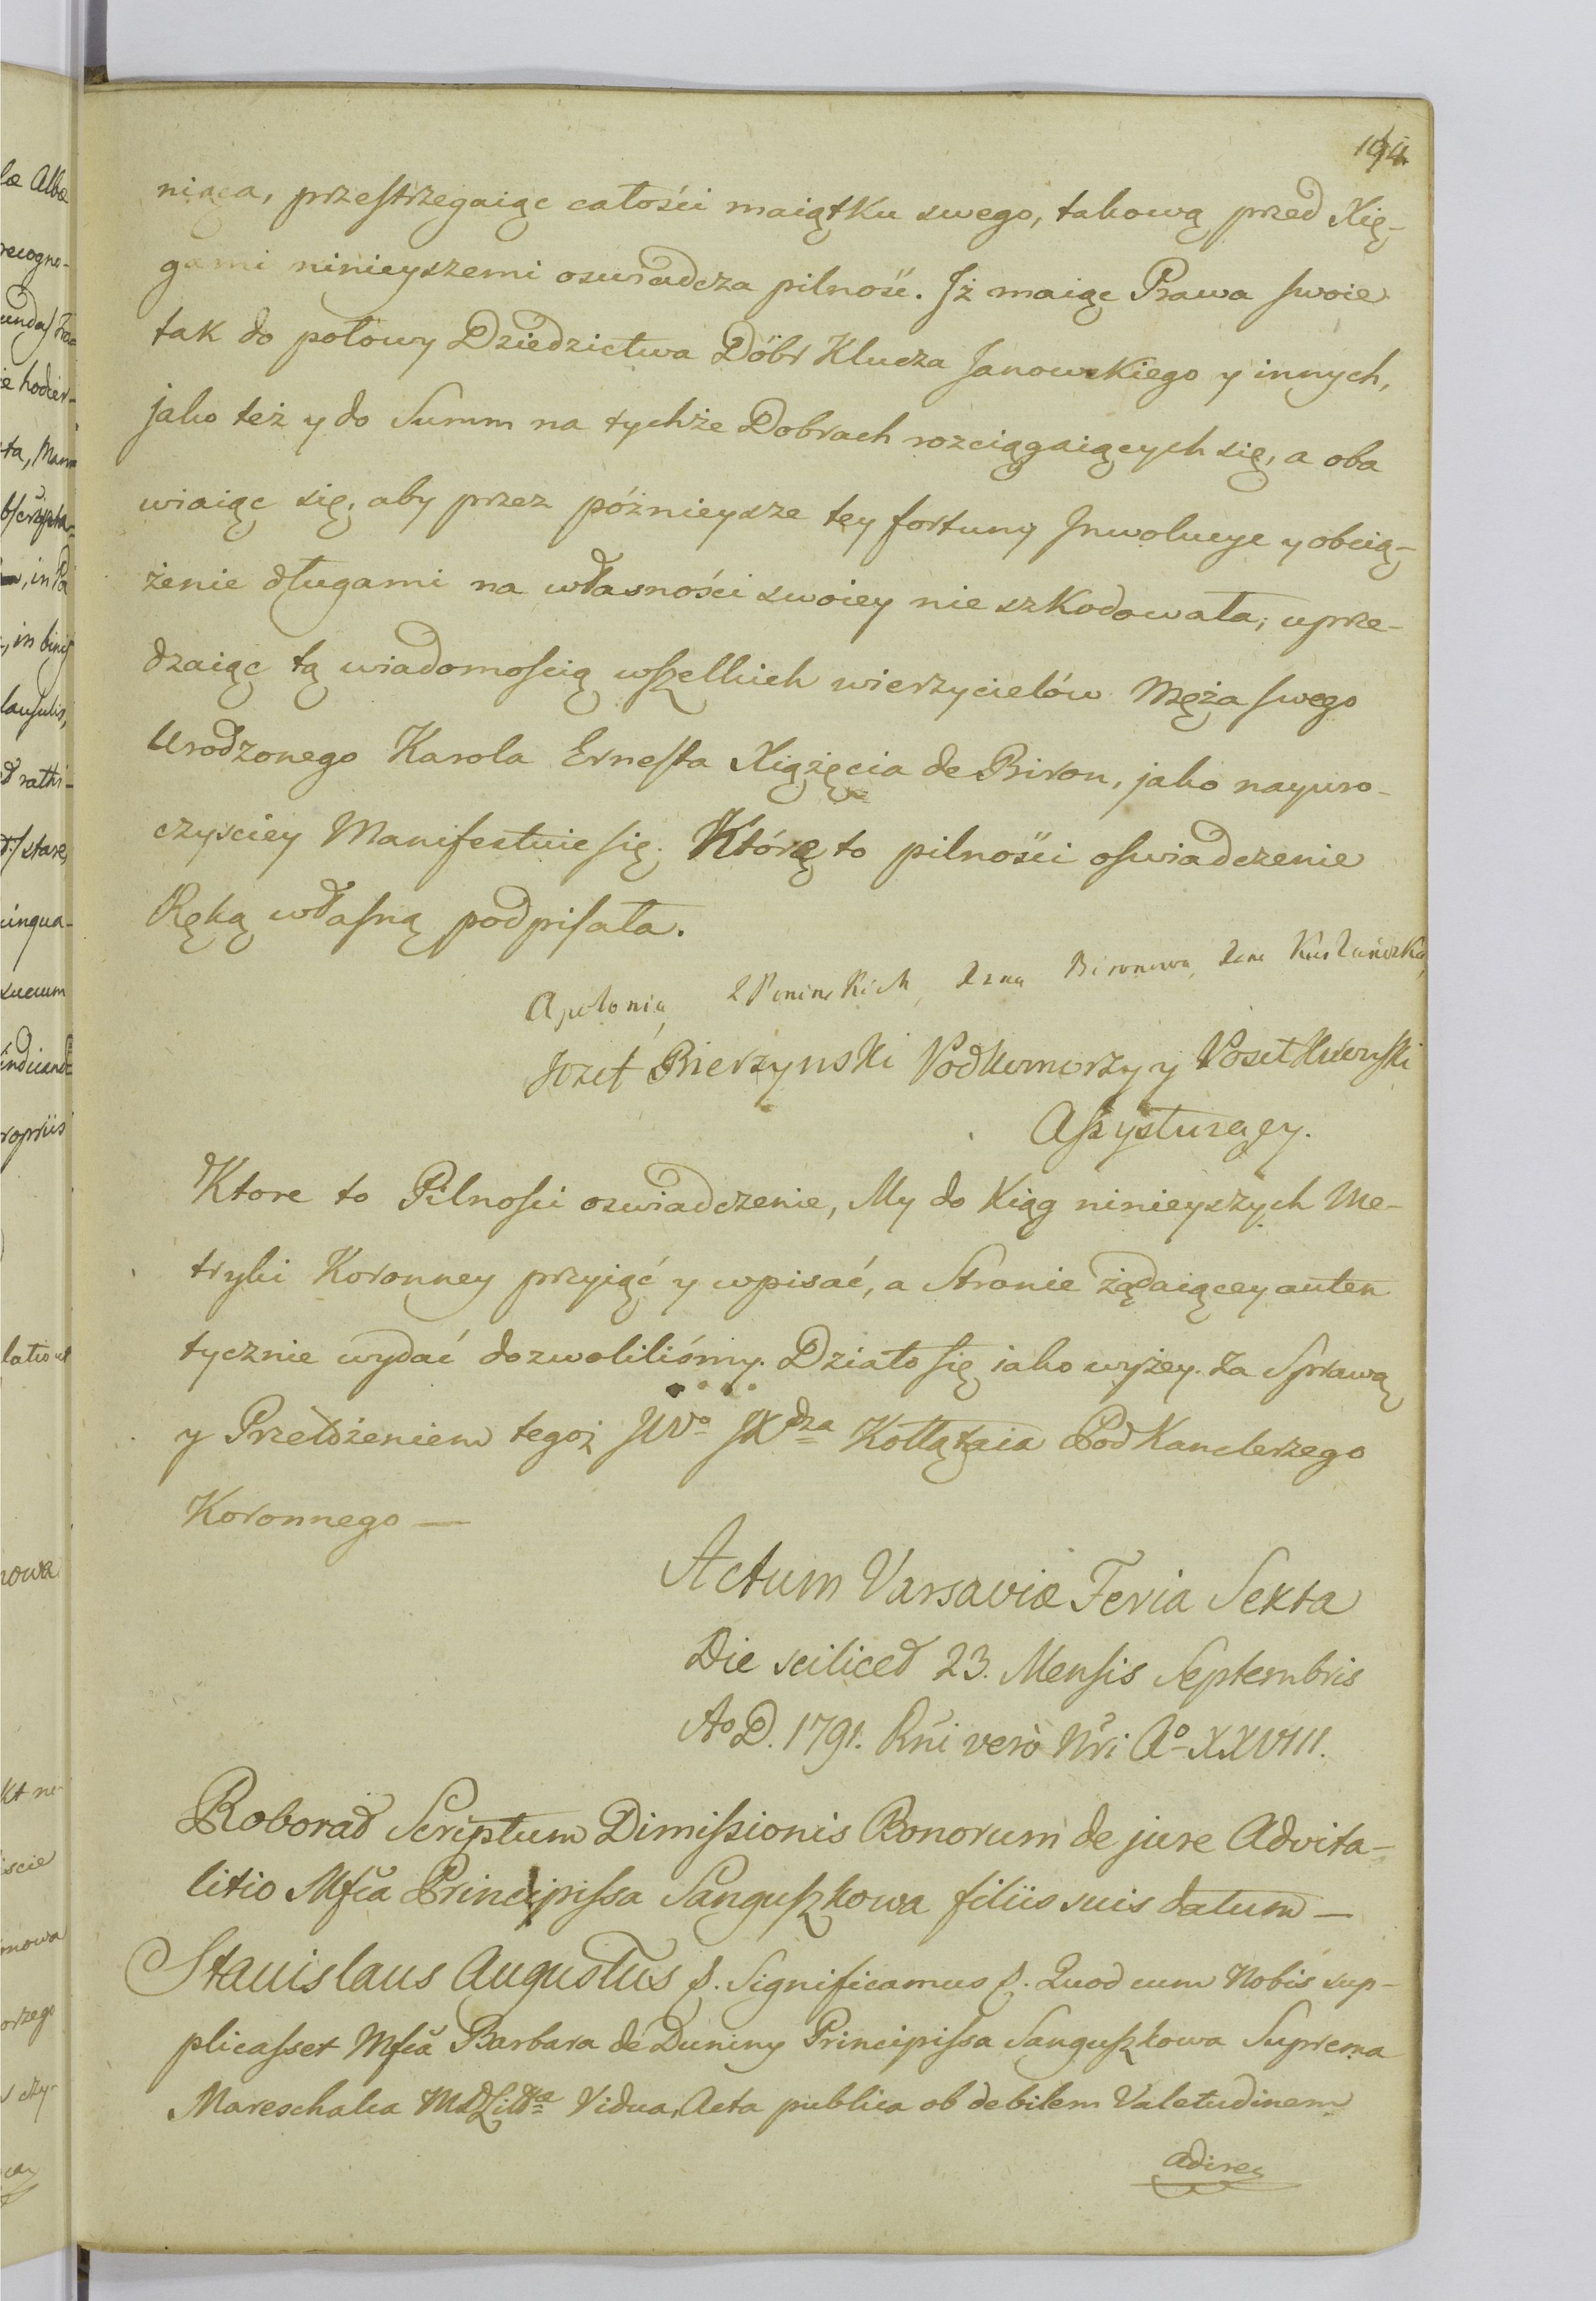 niąca, przestrzegaiąc całości maiątku swego, takową przed Xię-
gami ninieyszemi oswiadcza pilność. Iż maiąc Prawa swoie
tak do połowy Dziedzictwa Dóbr Klucza Janowskiego y innych,
jako też y do Summ na tychże Dobrach rozciągaiących się, a oba
wiaiąc się, aby przez późnieysze tey fortuny Inwolucye y obcią-
żenie długami na własności swoiey nie szkodowała; uprze-
dzaiąc tą wiadomością wszelkich wierzycielów Męża swego
Urodzonego Karola Ernesta Xiążęcia de Biron, jako nayuro-
czyściey Manifestuie się. Którę to pilności oswiadczenie
Ręką własną podpisała.
Apolonia z Poninskich Bironowa
Jozef Bierzynski Podkomorzy y Poseł Kiiowski
Assystuiący.
Ktore to Pilności oswiadczenie, My do Xiąg ninieyszych Me-
tryki Koronney przyiąć y wpisać, a Stronie żądaiącey auten
tycznie wydać dozwoliliśmy. Działo się iako wyżey. Za Sprawą
y Przełożeniem tegoż JWo JXdza Kołłątaia Pod Kanclerzego
Koronnego —
Actum Varsaviæ Feria Sexta
Die sciliced 23. Mensis Septembris
Ao D. 1791. Rni verò Nri Ao XXVIII.
Roborad Scriptum Dimissionis Bonorum de jure Advita-
litio Mfca Principissa Sanguszkowa filiis suis datum —
Stanislaus Augustus &. Significamus &. Quod cum Nobis sup-
plicasset Mfca Barbara de Duniny Principissa Sanguszkowa Suprema
Mareschalca MDLitt Vidua, Acta publica ob debilem Valetudinem
adire